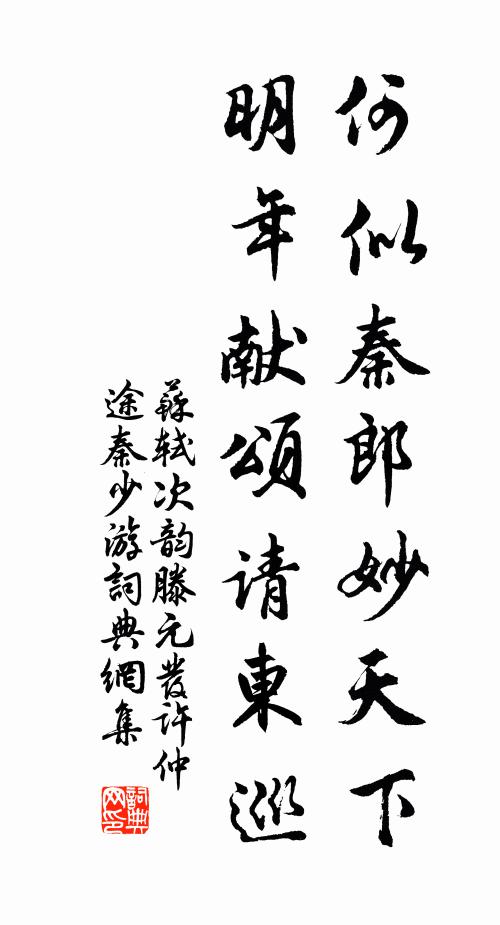 何似秦郎妙天下
明年献頌请東巡
蘇軾次韵滕元發許仲
途秦少游詞典網集
詞典
网印